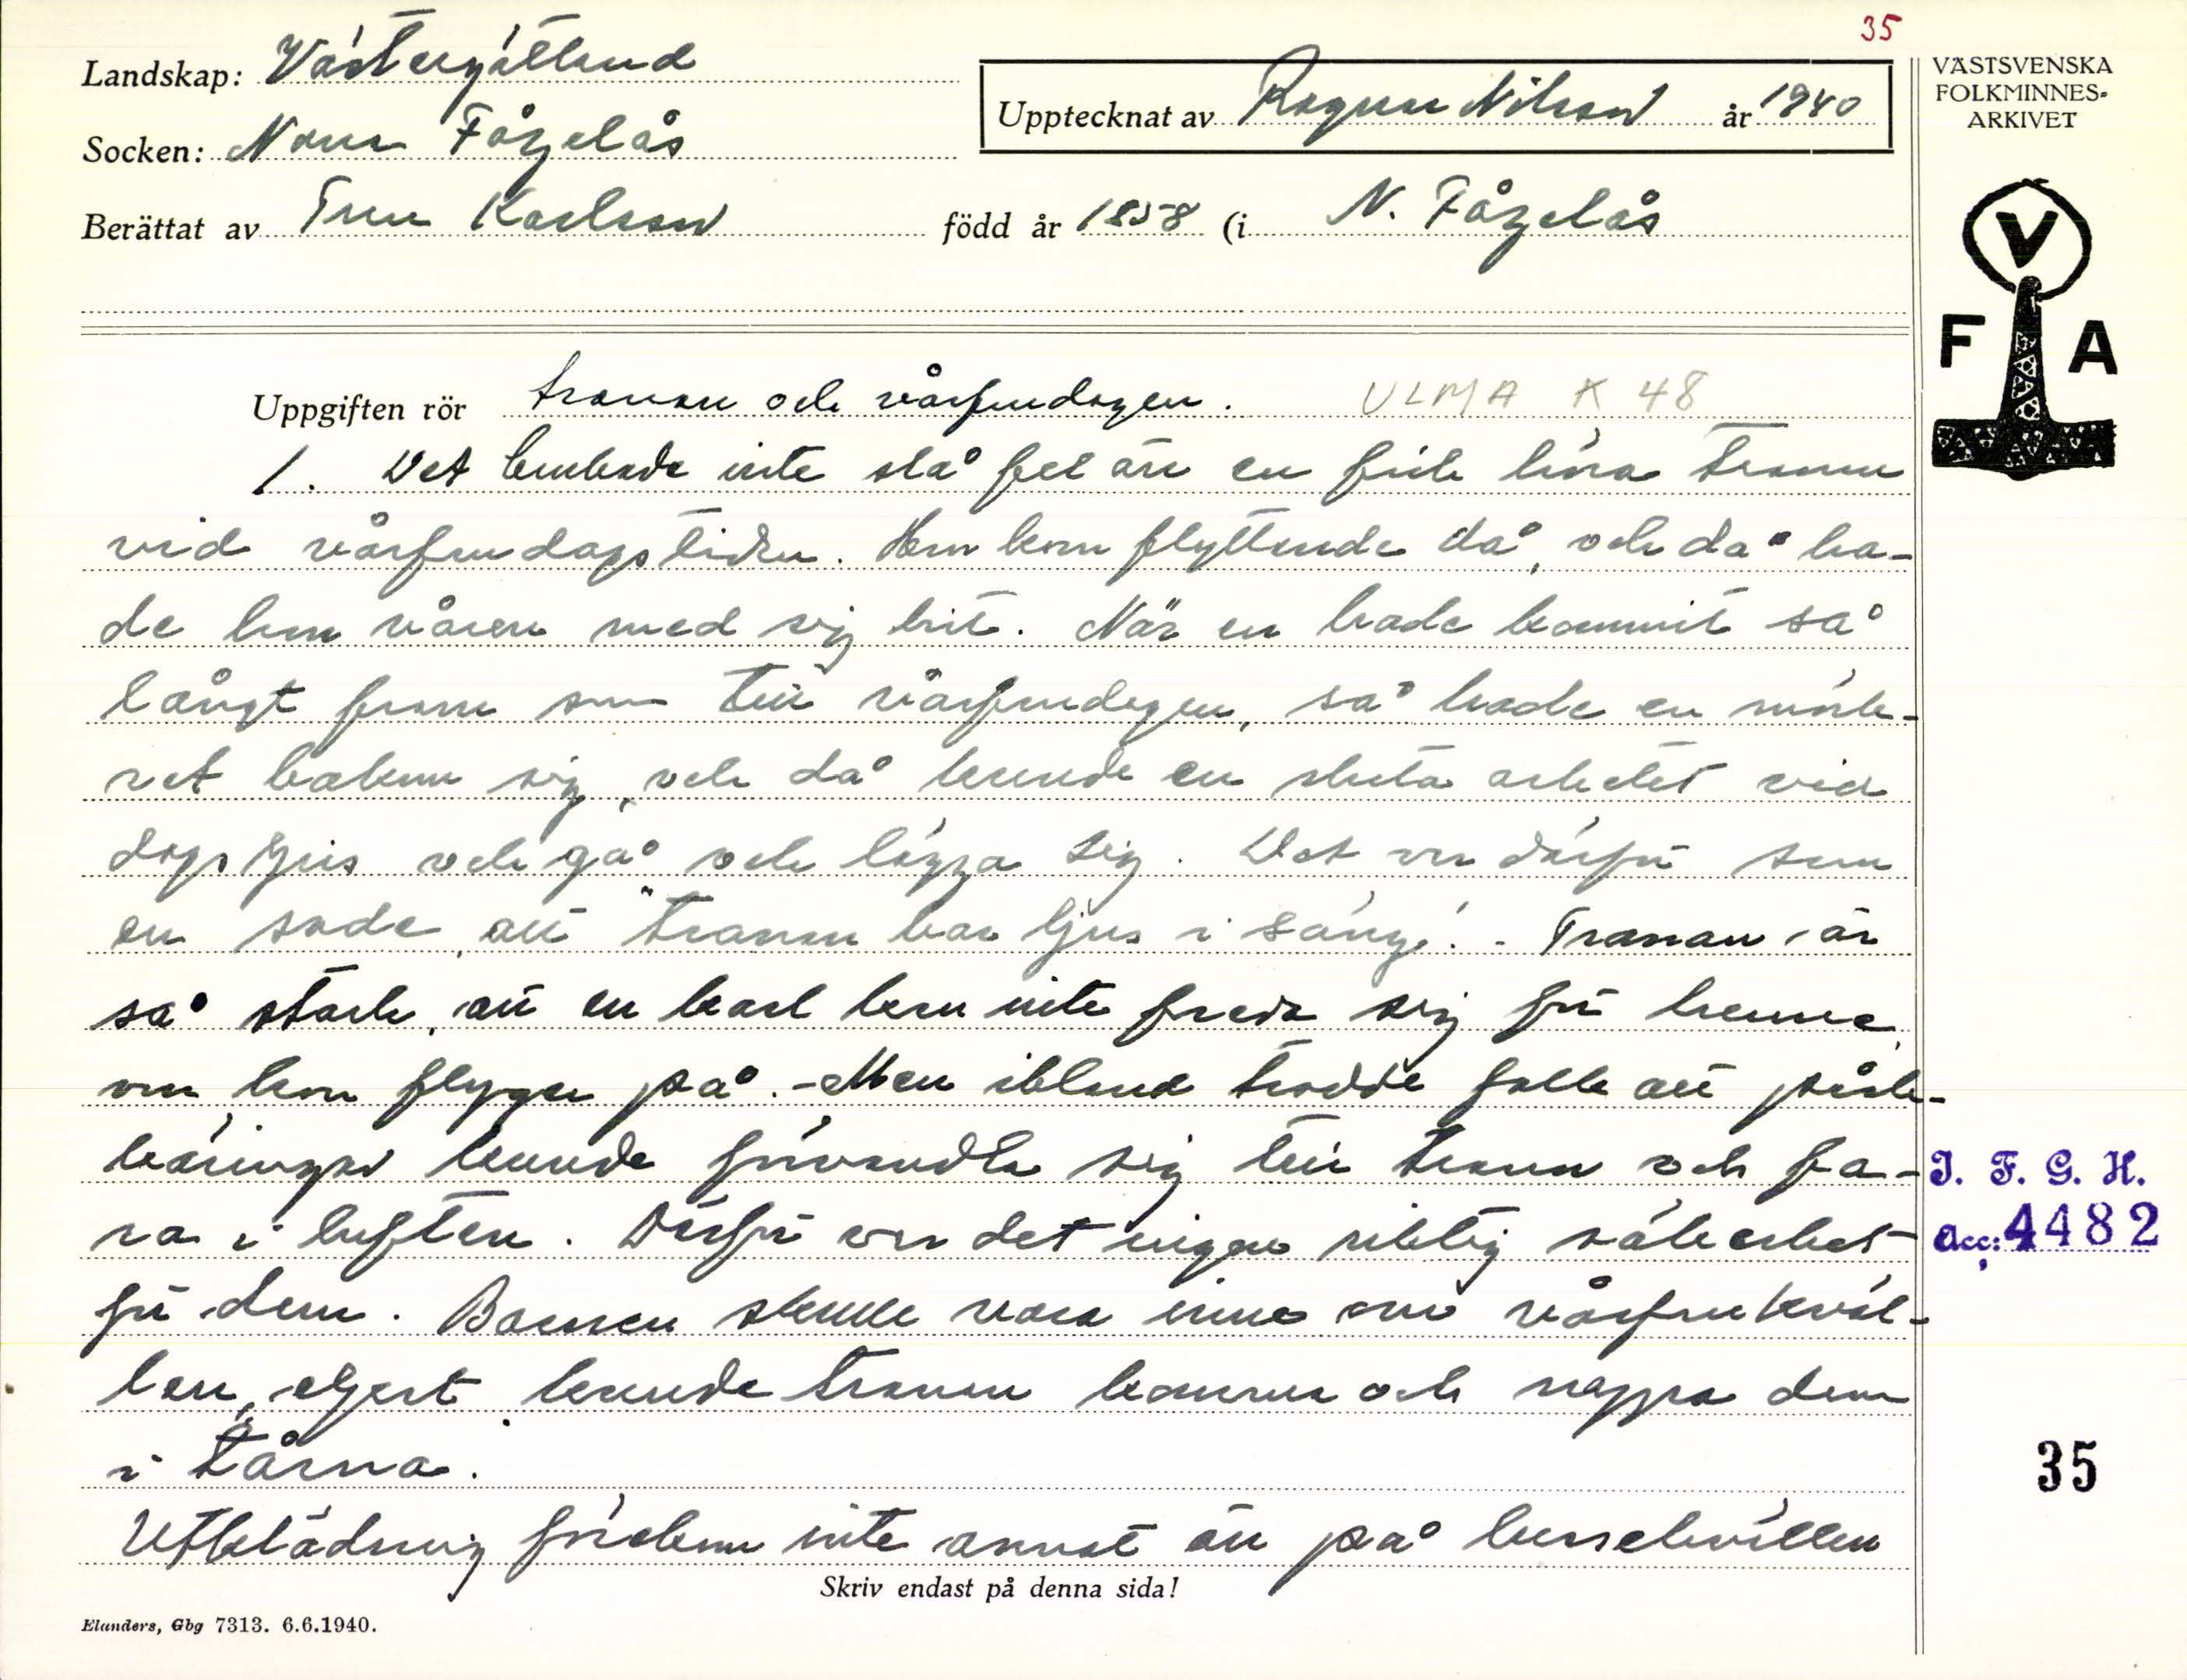 35
Landskap: Västergötland
Socken: Norra Fågelås
Berättat av Karlsson född år 1858 (i N. Fågelås
Upptecknat av Ragnar Nilsson år 1940
VÄSTSVENSKA
FOLKMINNES-
ARKIVET
V
F A
Uppgiften rör tranan och vårfrudagen. ULMA K 48
1. Det brukade inte slå fel än en fick höra tranan
vid vårfrudagstiden. Hon kom flyttande då, och då ha-
de hon våren med sig hit. När en hade kommit så
långt fram som till vårfrudagen, så hade en mörk-
ret bakom sig, och då kunde en sluta arbetet vid
dagsljus och gå och lägga sig. Det var därför som
en sade, att "tranan bar ljus i säng". - Tranan är
så stark, att en karl kan inte freda sig för henne,
om hon flyger på. - Men ibland trodde folk att påsk-
käringar kunde förvandla sig till tranor och fa-
ra i luften. Därför var det ingen riktig säkerhet
för dem. Barnen skulle vara inne om vårfrukväl-
len, eljest kunde tranan komma och nappa dem
i tårna.
Utklädning förekom inte annat än på lussekvällen
Skriv endast på denna sida!
Elanders, Gbg 7313. 6.6.1940.
I. F. G. H.
Acc: 4482
35